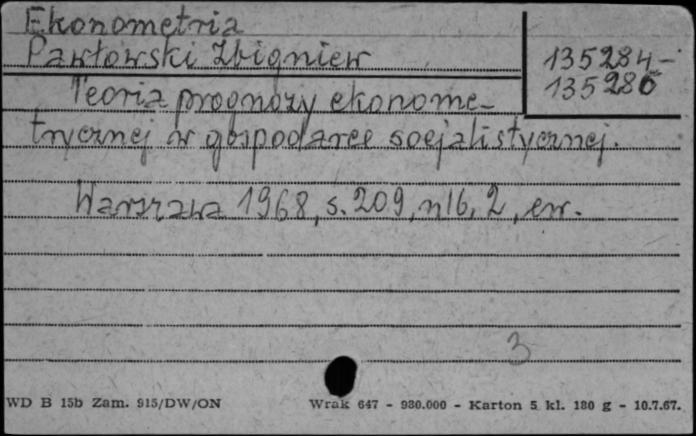 Ekonometria
Pawłowski Zbigniew
135284-
135286
Teoria prognozy ekonome-
trycznej w gospodarce socjalistycznej.
Warszawa 1968, s. 209, nlb. 2, err.
3
WD B 15b Zam. 915/DW/ON Wrak 647 - 930.000 - Karton 5 kl. 180 g - 10.7.67.